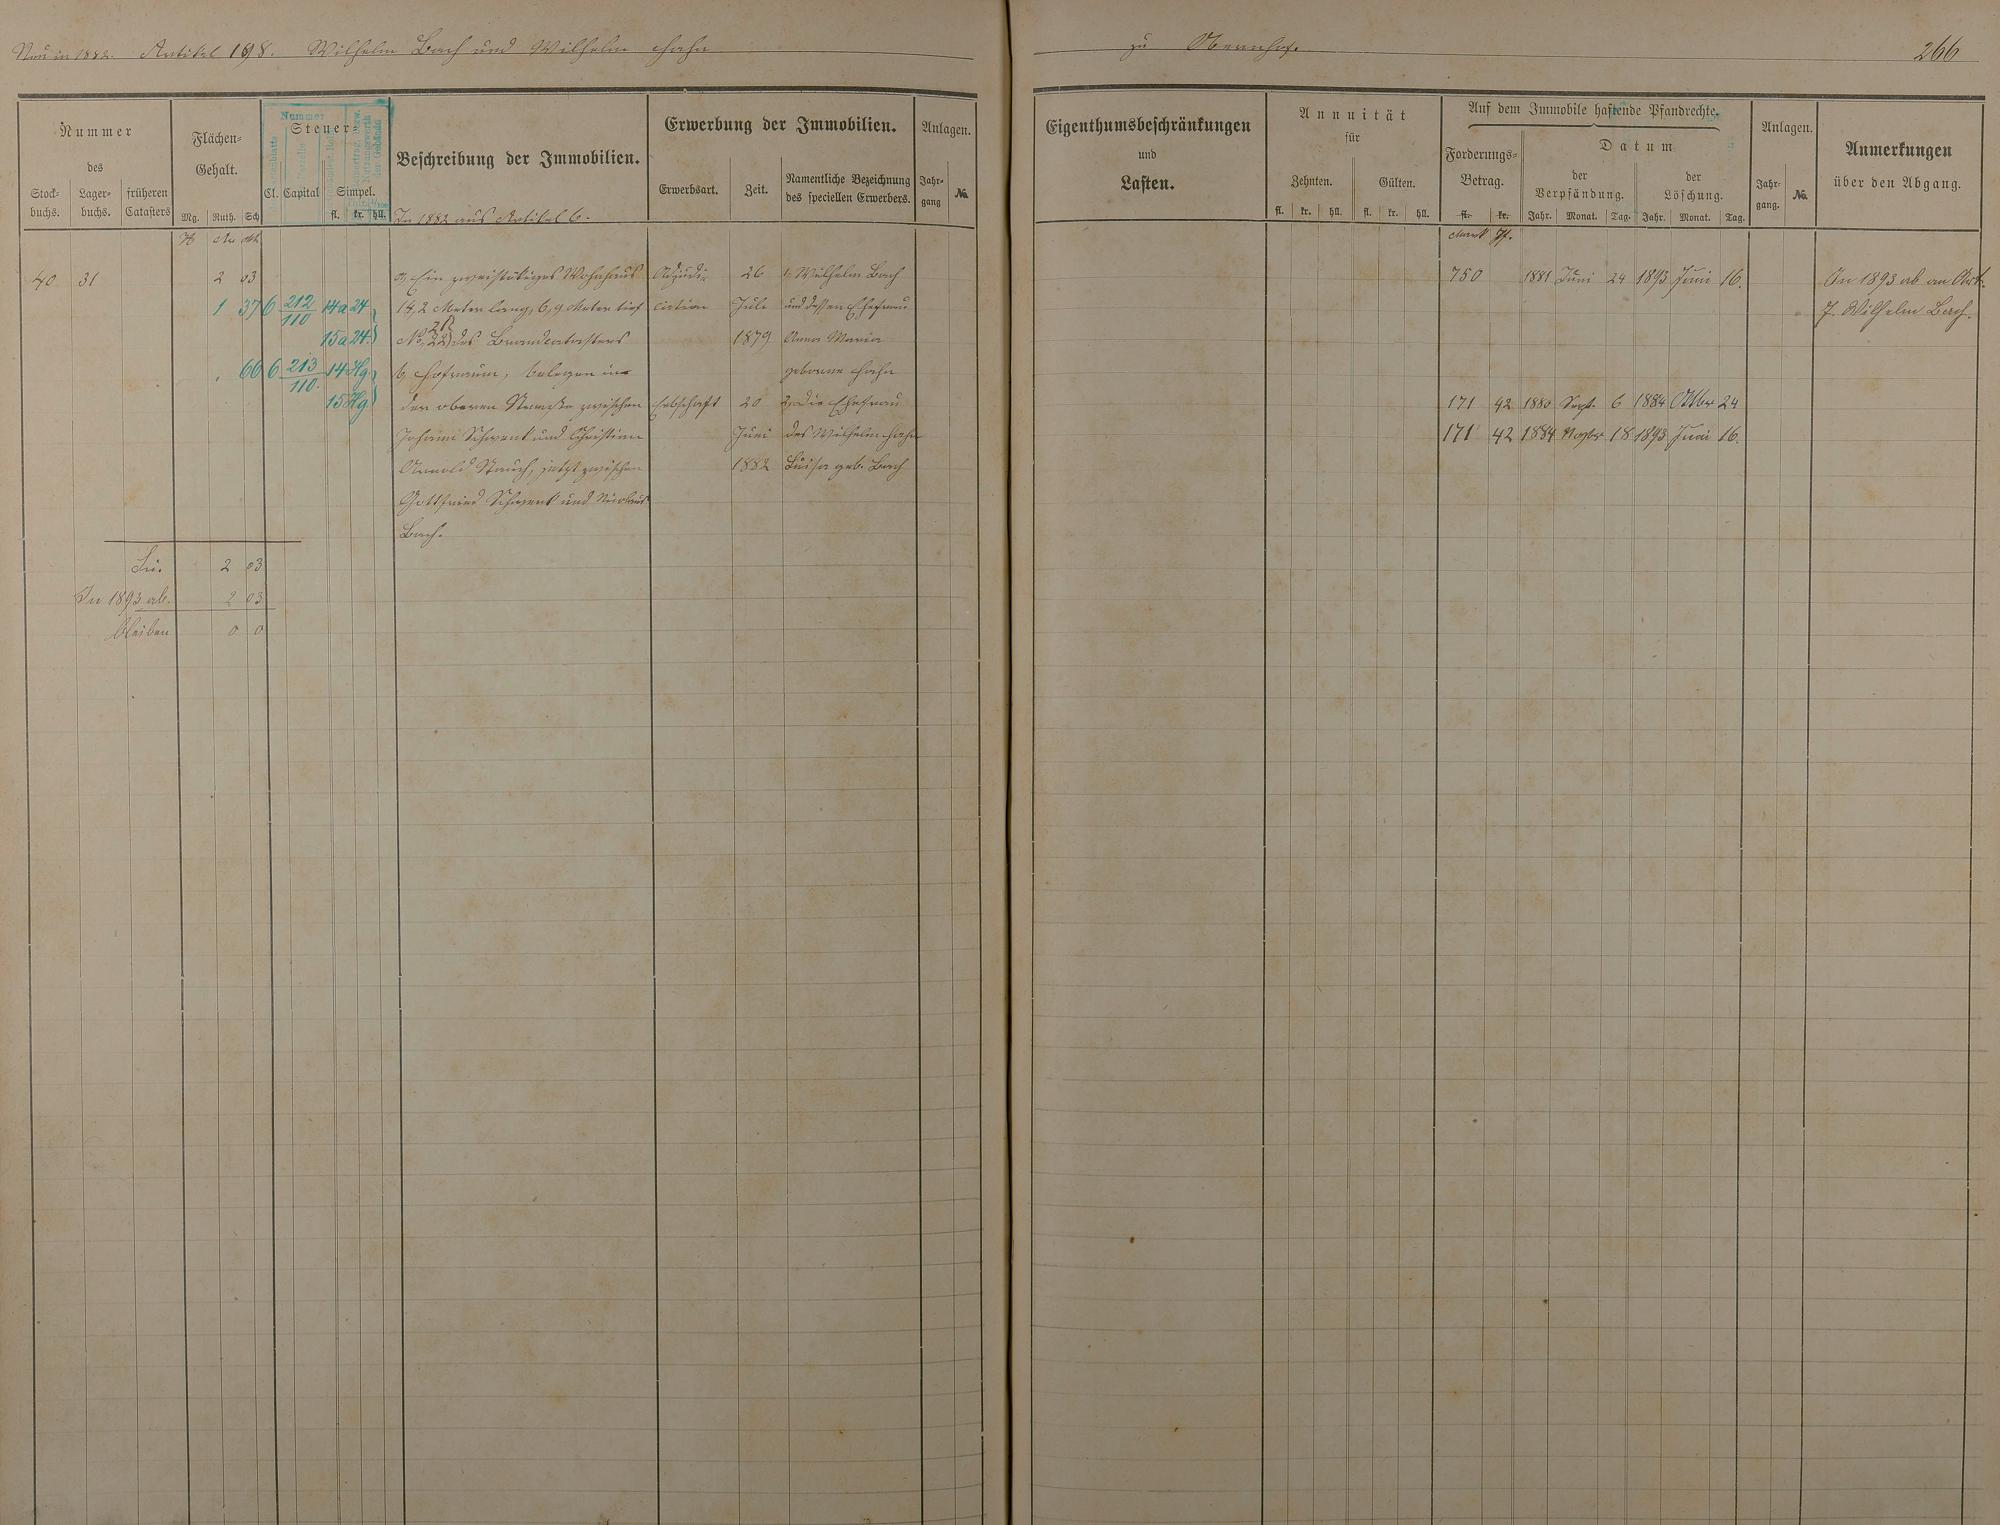 Neu in 1882. Artikel 198. Wilhelm Bach und Wilhelm Hahn
zu Obernhof.
266
Nummer
des
Stock-
buchs.
Lager-
buchs.
früheren
Catasters
Flächen-
Gehalt.
Mg. Ruth. Sch
Nummer
Steuer
Cl. Capital
Simpel.
fl. kr. hll.
Beschreibung der Immobilien.
In 1882 aus Artikel 6.
Erwerbung der Immobilien.
Erwerbsart.
Zeit.
Namentliche Bezeichnung
des speciellen Erwerbers.
Anlagen.
Jahr-
gang
No.
Eigenthumsbeschränkungen
und
Lasten.
Annuität
für
Zehnten.
Gülten.
fl. kr. hll. fl. kr. hll.
Auf dem Immobile haftende Pfandrechte.
Forderungs-
Betrag.
fl. kr.
Datum
der
Verpfändung.
der
Löschung.
Jahr. Monat. Tag. Jahr. Monat. Tag.
Anlagen.
Jahr-
gang.
No.
Anmerkungen
über den Abgang.
H Ar Mtr
Mark Pf.
40 31 2 03
1 37 6 212/110 14a 24
15a 24
66 6 213/110 14 Hg
15 Hg
a, Ein zweistöckiges Wohnhaus
14,2 Meter lang, 6,9 Meter tief
No. 22 des Brandcatasters
b, Hofraum, belegen in
der oberen Strasse zwischen
Johann Schwenk und Christian
Arnold Strauch, jetzt zwischen
Gottfried Schwenk und Nicolaus
Bach.
Adjudi-
cation
26
Juli
1879
1, Wilhelm Bach
und dessen Ehefrau
Anna Maria
geborne Hahn
Erbschaft
20
Juni
1882
2, Die Ehefrau
des Wilhelm Hahn
Luisa geb. Bach
750 1881 Juni 24 1893 Juni 16.
171 42 1880 Sept. 6 1884 Oktbr 24
171 42 1884 Novbr. 18 1893 Juni 16.
In 1893 ab an Art.
7. Wilhelm Bach.
Su. 2 03
In 1893 ab. 2 03
bleiben 0 0